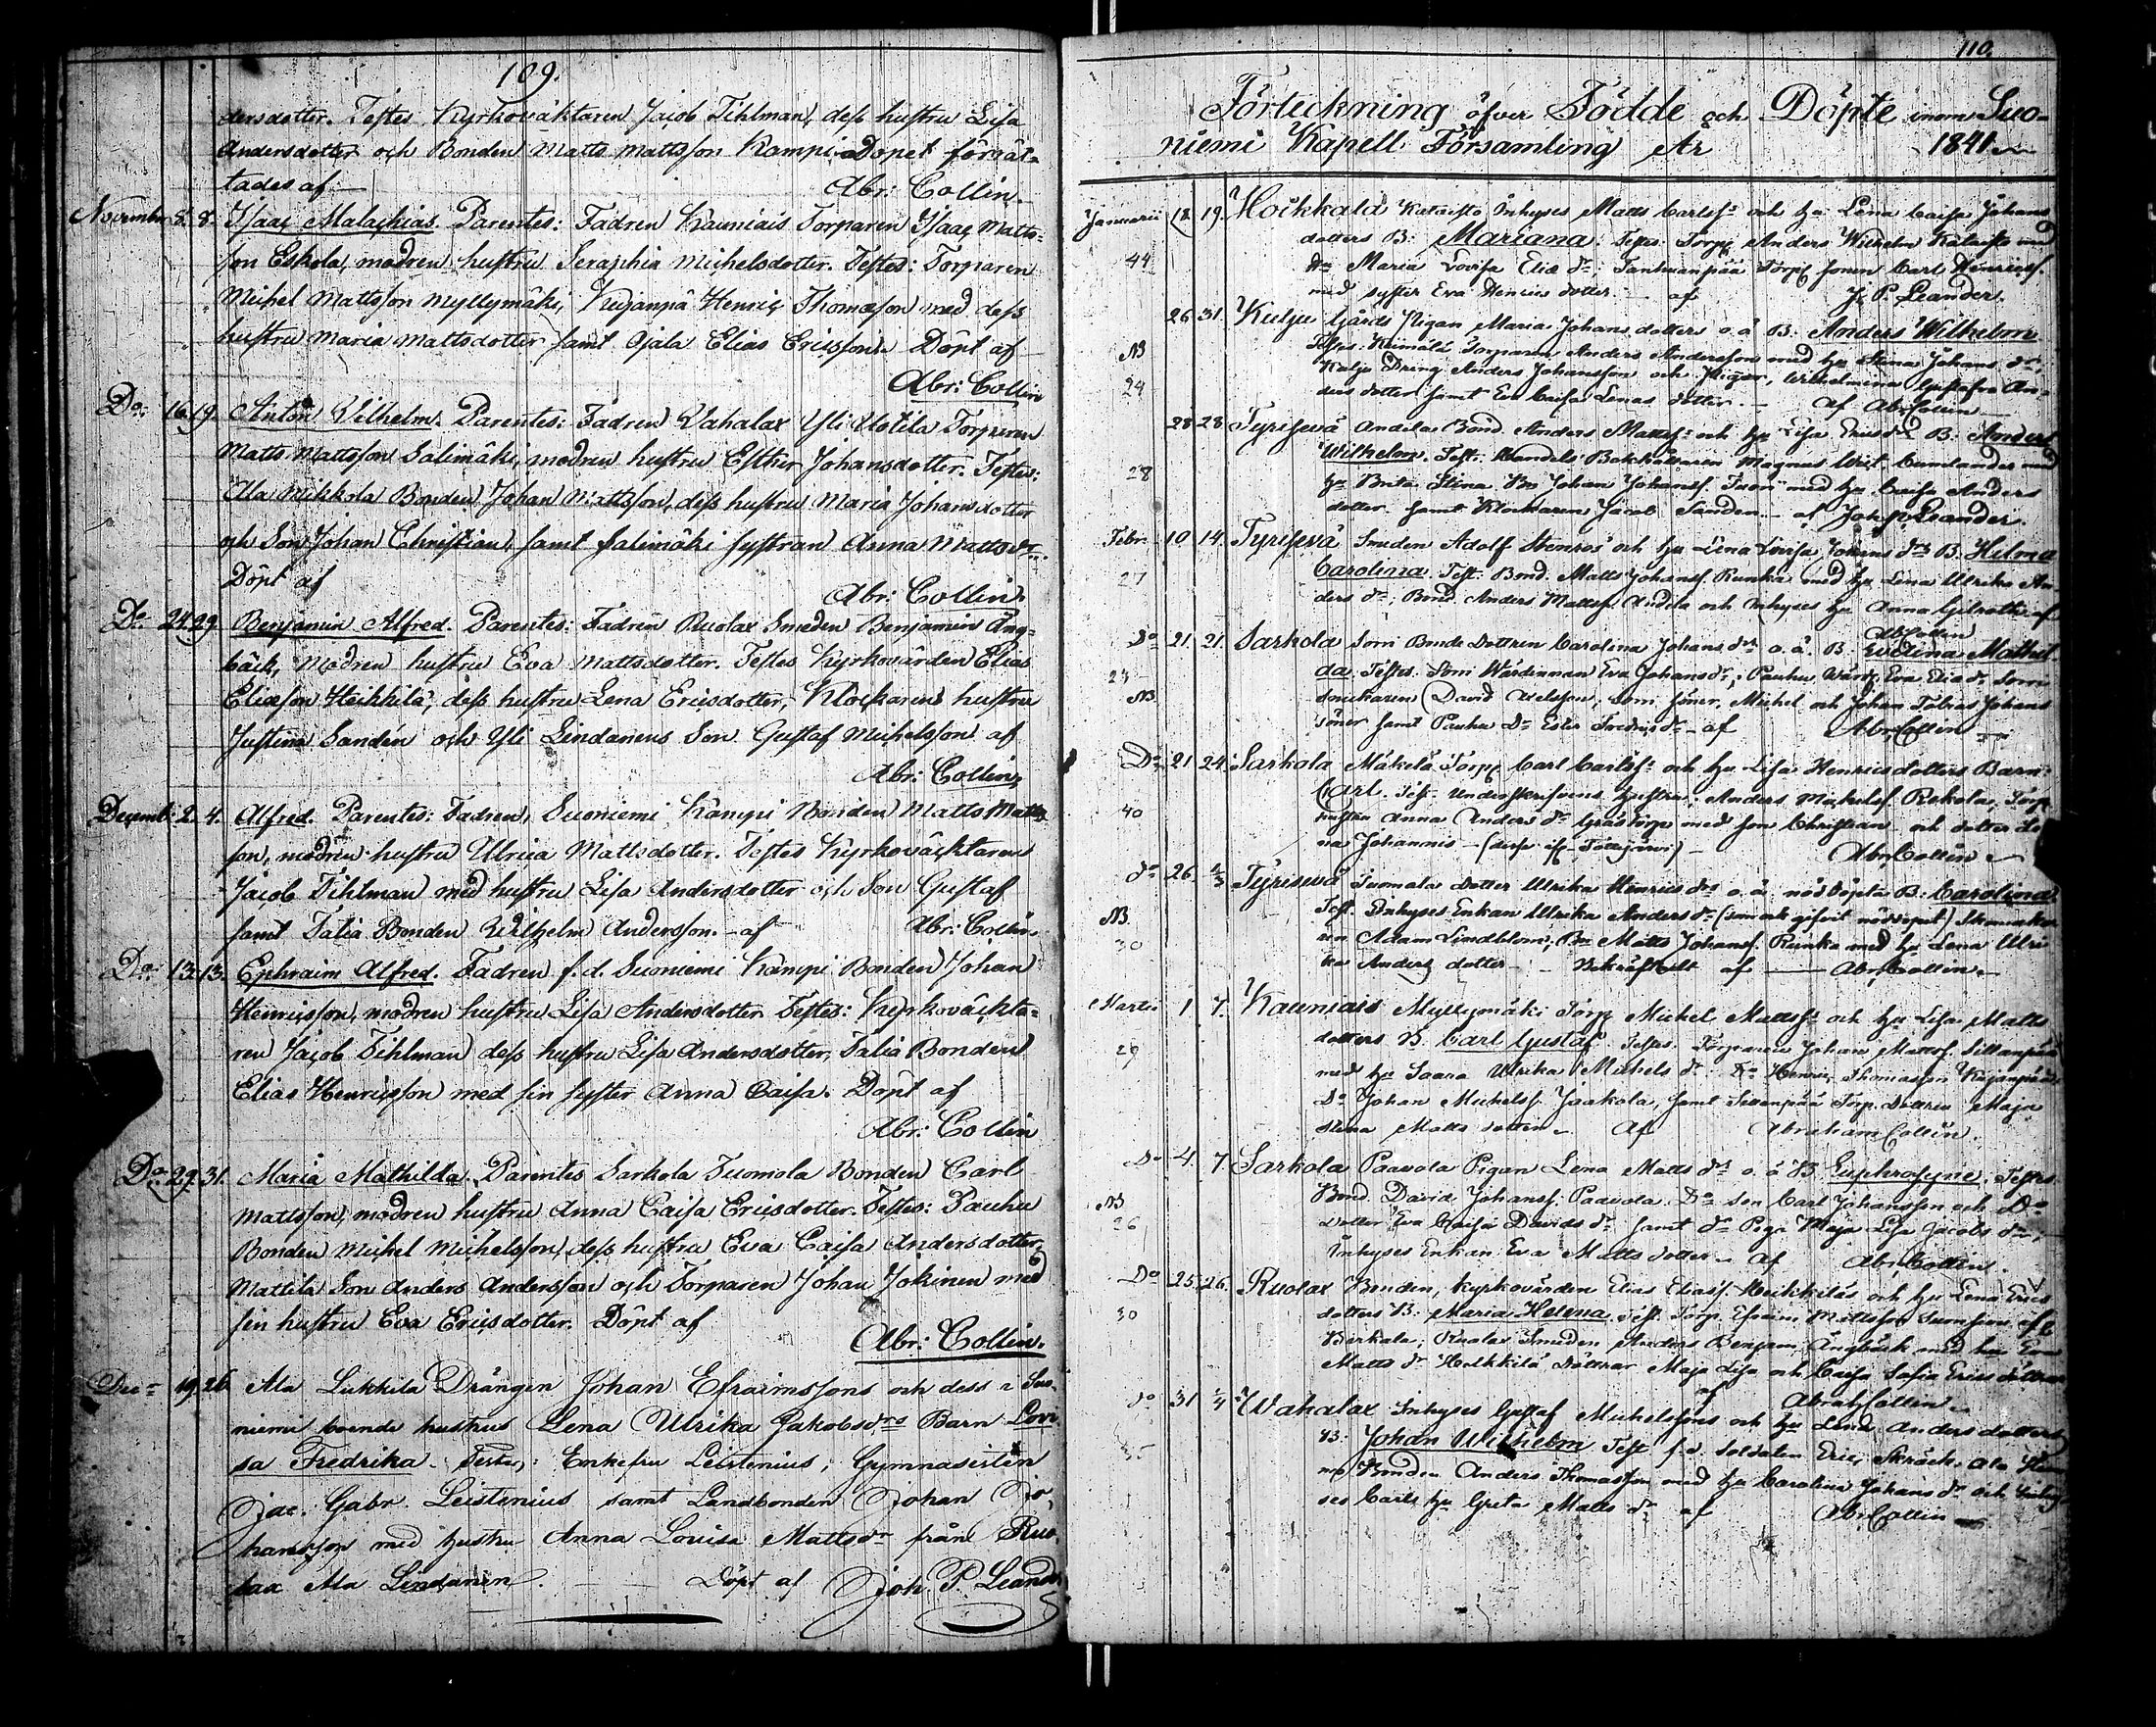 109.
dersdotter. Testes Kyrkoväktaren Jacob Tihlman, dess hustru Lisa
Andersdotter och Bonden Matts Mattsson Kampi. Dopet förrät-
tades af Abr: Collin.
Novembr 8. 8. Isaac Malachias. Parentes: Fadren Kauniais Torparen Isaac Matts-
son Eskola, modren hustru Seraphia Michelsdotter. Testes: Torparen
Michel Mattsson Myllymäki, Kujanpä Henric Thomasson med dess
hustru Maria Mattsdotter samt Ojala Elias Ericsson. Döpt af
Abr: Collin
Do 16. 19. Anton Vilhelm. Parentes: Fadren Vahalax Yli Uotila Torparen
Matts Mattsson Salimäki, modren hustru Esther Johansdotter. Testes:
Ala Mikkola Bonden Johan Mattsson, dess hustru Maria Johansdotter
och Son Johan Christian, samt Salimäki systran Anna Mattsdr.
Döpt af Abr: Collin.
Do 24. 29. Benjamin Alfred. Parentes: Fadren Ruolax Smeden Benjamin Äng-
bäck, Modren hustru Eva Mattsdotter. Testes Kyrkovärden Elias
Eliasson Heikkilä, dess hustru Lena Ericsdotter, Klockarens hustru
Justina Sandén och Yli Lindanens Son Gustaf Michelsson af
Abr: Collin.
Decemb: 2. 4. Alfred. Parentes: Fadren, Suoniemi Kampi Bonden Matts Matts-
son, modren hustru Ulrica Mattsdotter. Testes Kyrkoväcktaren
Jacob Tihlman med hustru Lisa Andersdotter och Son Gustaf
samt Talia Bonden Wilhelm Andersson. - af Abr: Collin.
Do 13. 13. Ephraim Alfred. Fadren f.d. Suoniemi Kampi Bonden Johan
Henricsson, modren hustru Lisa Andersdotter Testes: Kyrkoväckta-
ren Jacob Tihlman dess hustru Lisa Andersdotter, Talia Bonden
Elias Henricsson med sin syster Anna Caisa. Döpt af
Abr: Collin
Do 29. 31. Maria Mathilda. Parentes Sarkola Tuomola Bonden Carl
Mattsson, modren hustru Anna Caisa Ericsdotter. Testes: Pauhu
Bonden Michel Michelsson, dess hustru Eva Caisa Andersdotter,
Mattila Son Anders Andersson och Torparen Johan Jokinen med
sin hustru Eva Ericsdotter. Döpt af
Abr: Collin.
Dec 19. 26 Ala Lukkila Drängen Johan Efraimssons och dess i Suo-
niemi boende hustrus Lena Ulrika Jakobsdrs Barn Lovi-
sa Fredrika. Testes: Enkefru Leistenius, Gymnasisten
Jac. Gabr. Leistenius samt Landbonden Johan Jo-
hansson med hustru Anna Louisa Mattsdr från Ruo-
lax Ala Lindanen. Döpt af Joh. P. Leander
110.
Förteckning öfver Födde och Döpte inom Suo-
niemi Kapell Församling År 1841
Januarii 18 19. Hoikkala Kataisto Inhyses Matts Carlss och hu Lena Caisa Johans
dotters B: Mariana. Testes: Torp. Anders Wilhelm Kataisto med
44 Maria Lovisa Eliæ dr, Tanhuanpää Torp. sonen Carl Henricss.
med syster Eva Henrics dotter. af J. P. Leander.
26 31. Kulju Gårds Pigan Maria Johans dotters o.ä B: Anders Wilhelm
NB Testes: Torparen Anders Anderssons med hu Stina Johans dr,
24 Kulju Dräng Anders Johansson och Pigor, Wilhelmina Gustafva An-
ders dotter samt Eva Caisa Lenas dotter. af Abr Collin
28 28 Tyrisevä Andila Bond. Anders Mattss och hu Lisa Ericsdrs B: Anders
Wilhelm. Test: Handels Bokhållaren Magnus Cumlander med
28 hu Brita Stina Johan Johanss. med hu Caisa Anders
dotter samt Klockaren Jacob Sanden. af Joh. P. Leander.
Febr. 10 14. Tyrisevä Smeden Adolf Stenros och hu Lena Lovisa Johans drs B. Hilma
27 Carolina. Test: Bond. Matts Johanss. Runka med hu Lena Ulrika An-
ders dr, Bond Anders Mattss. Andila och Inhyses hu Anna af
Abr Collin
Do 21. 21. Sarkola Sorri Bonde Dottren Carolina Johans drs o.ä. B: Evelina Mathil-
24 da. Testes: Sorri Wärdinnan Eva Johansdr, Pauhu Wärd. Eva Eliædr Sorri
NB David Adelsson, som söner, Michel och Johan Tobias Johans
söner samt Pauhu Dr Ester Fredricsdr. af Abr Collin
Do 21 24. Sarkola Mäkelä Torp. Carl Carlss och hu Lisa Henricsdotters Barn:
40 Carl. Test: Underskrifvens hustru, Anders Michelss. Rekola, Torp.
hustru Anna Anders dr med son Christian och dotter Le-
na Johannis Abr Collin
do 26. Tyrisevä Tuomala dotter Ulrika Henrics drs o.ä. nöddöpta B: Carolina.
NB Test. Inhyses Enkan Ulrika Anders dr (som ock gifvit nöddopet) Skomaka-
30 ren Adam Lindblom, Bn Matts Johanss. Runka med hu Lena Ulri-
ka Anders dotter. Bekräftelt af Abr Collin
Martii 1 7. Kauniais Myllymäki Torp. Michel Mattss och hu Lisa Matts
29 dotters B. Carl Gustaf Testes. Torparen Johan Mattss. Sillanpää
med hu Saara Ulrika Michels dr. Do Henric Thomasson Kujanpää
Do Johan Michelss. Jaakola, samt Sillanpää Torp. Dottren Maja
Stina Matts dotter. Af Abraham Collin.
Do 4. 7. Sarkola Paavola Pigan Lena Matts drs o.ä B Euphrosyne. Testes
NB Bond. David Johanss: Paavola Do son Carl Johansson och Do
26 dotter Eva Caisa Davids dr samt do Piga Maja Lisa Jacobs dr,
Inhyses Enkan Eva Matts dotter. af Abr Collin.
Do 25. 26. Ruolax Bonden, kyrkovärden Elias Eliass. Heikkiläs och hu Lena Erics
30 dotters B: Maria Helena. Test. Torp. Efraim Mattsson
Birkala; Ruolax Smeden Anders Benjam. Ängbäck med hu Eva
Matts dr Heikkilä döttrar Maja Lisa och Caisa Sofia Erics döttrar
af Abrah Collin
do 31 Wahalax Inhyses Gustaf Michelssons och hu Lena Anders dotters
35 B: Johan Wilhelm Test f.d. Soldaten Eric Skräck, Ala
Bonden Anders Thomasson med hu Carolina Johans dr och Inhy-
ses Carls hu Greta Matts dr af Abr Collin